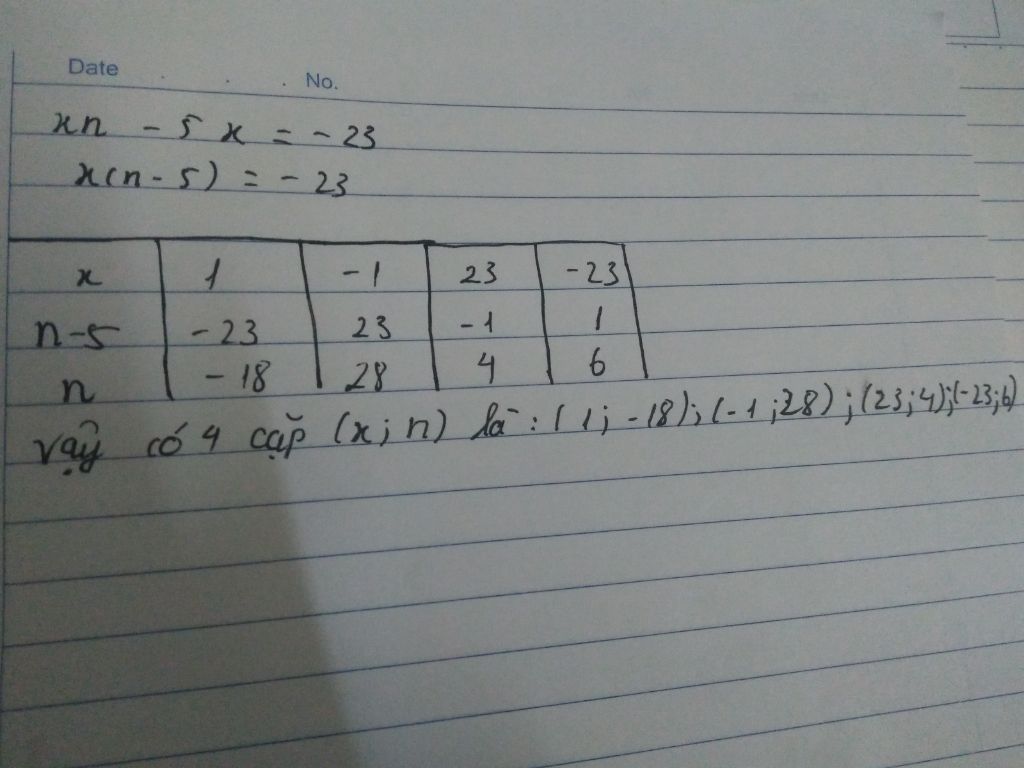 Date No.
xn - 5x = - 23
x(n - 5) = - 23
x 1 -1 23 -23
n-5 -23 23 -1 1
n -18 28 4 6
vậy có 4 cặp (x; n) là : (1; -18); (-1; 28) ; (23; 4); (-23; 6)